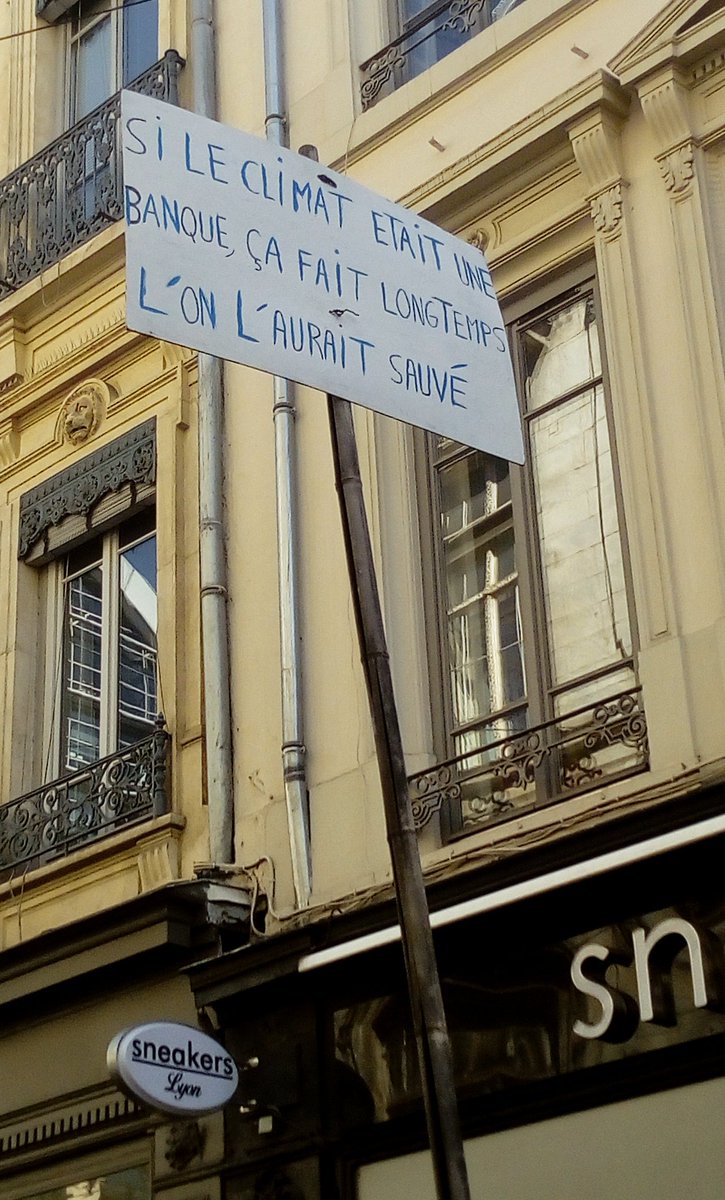 Si LE CLiMAT ETAiT UNE
BANQUE, ÇA FAiT LONGTEMPS
L'ON L'AURAiT SAUVÉ
sn
sneakers
Lyon